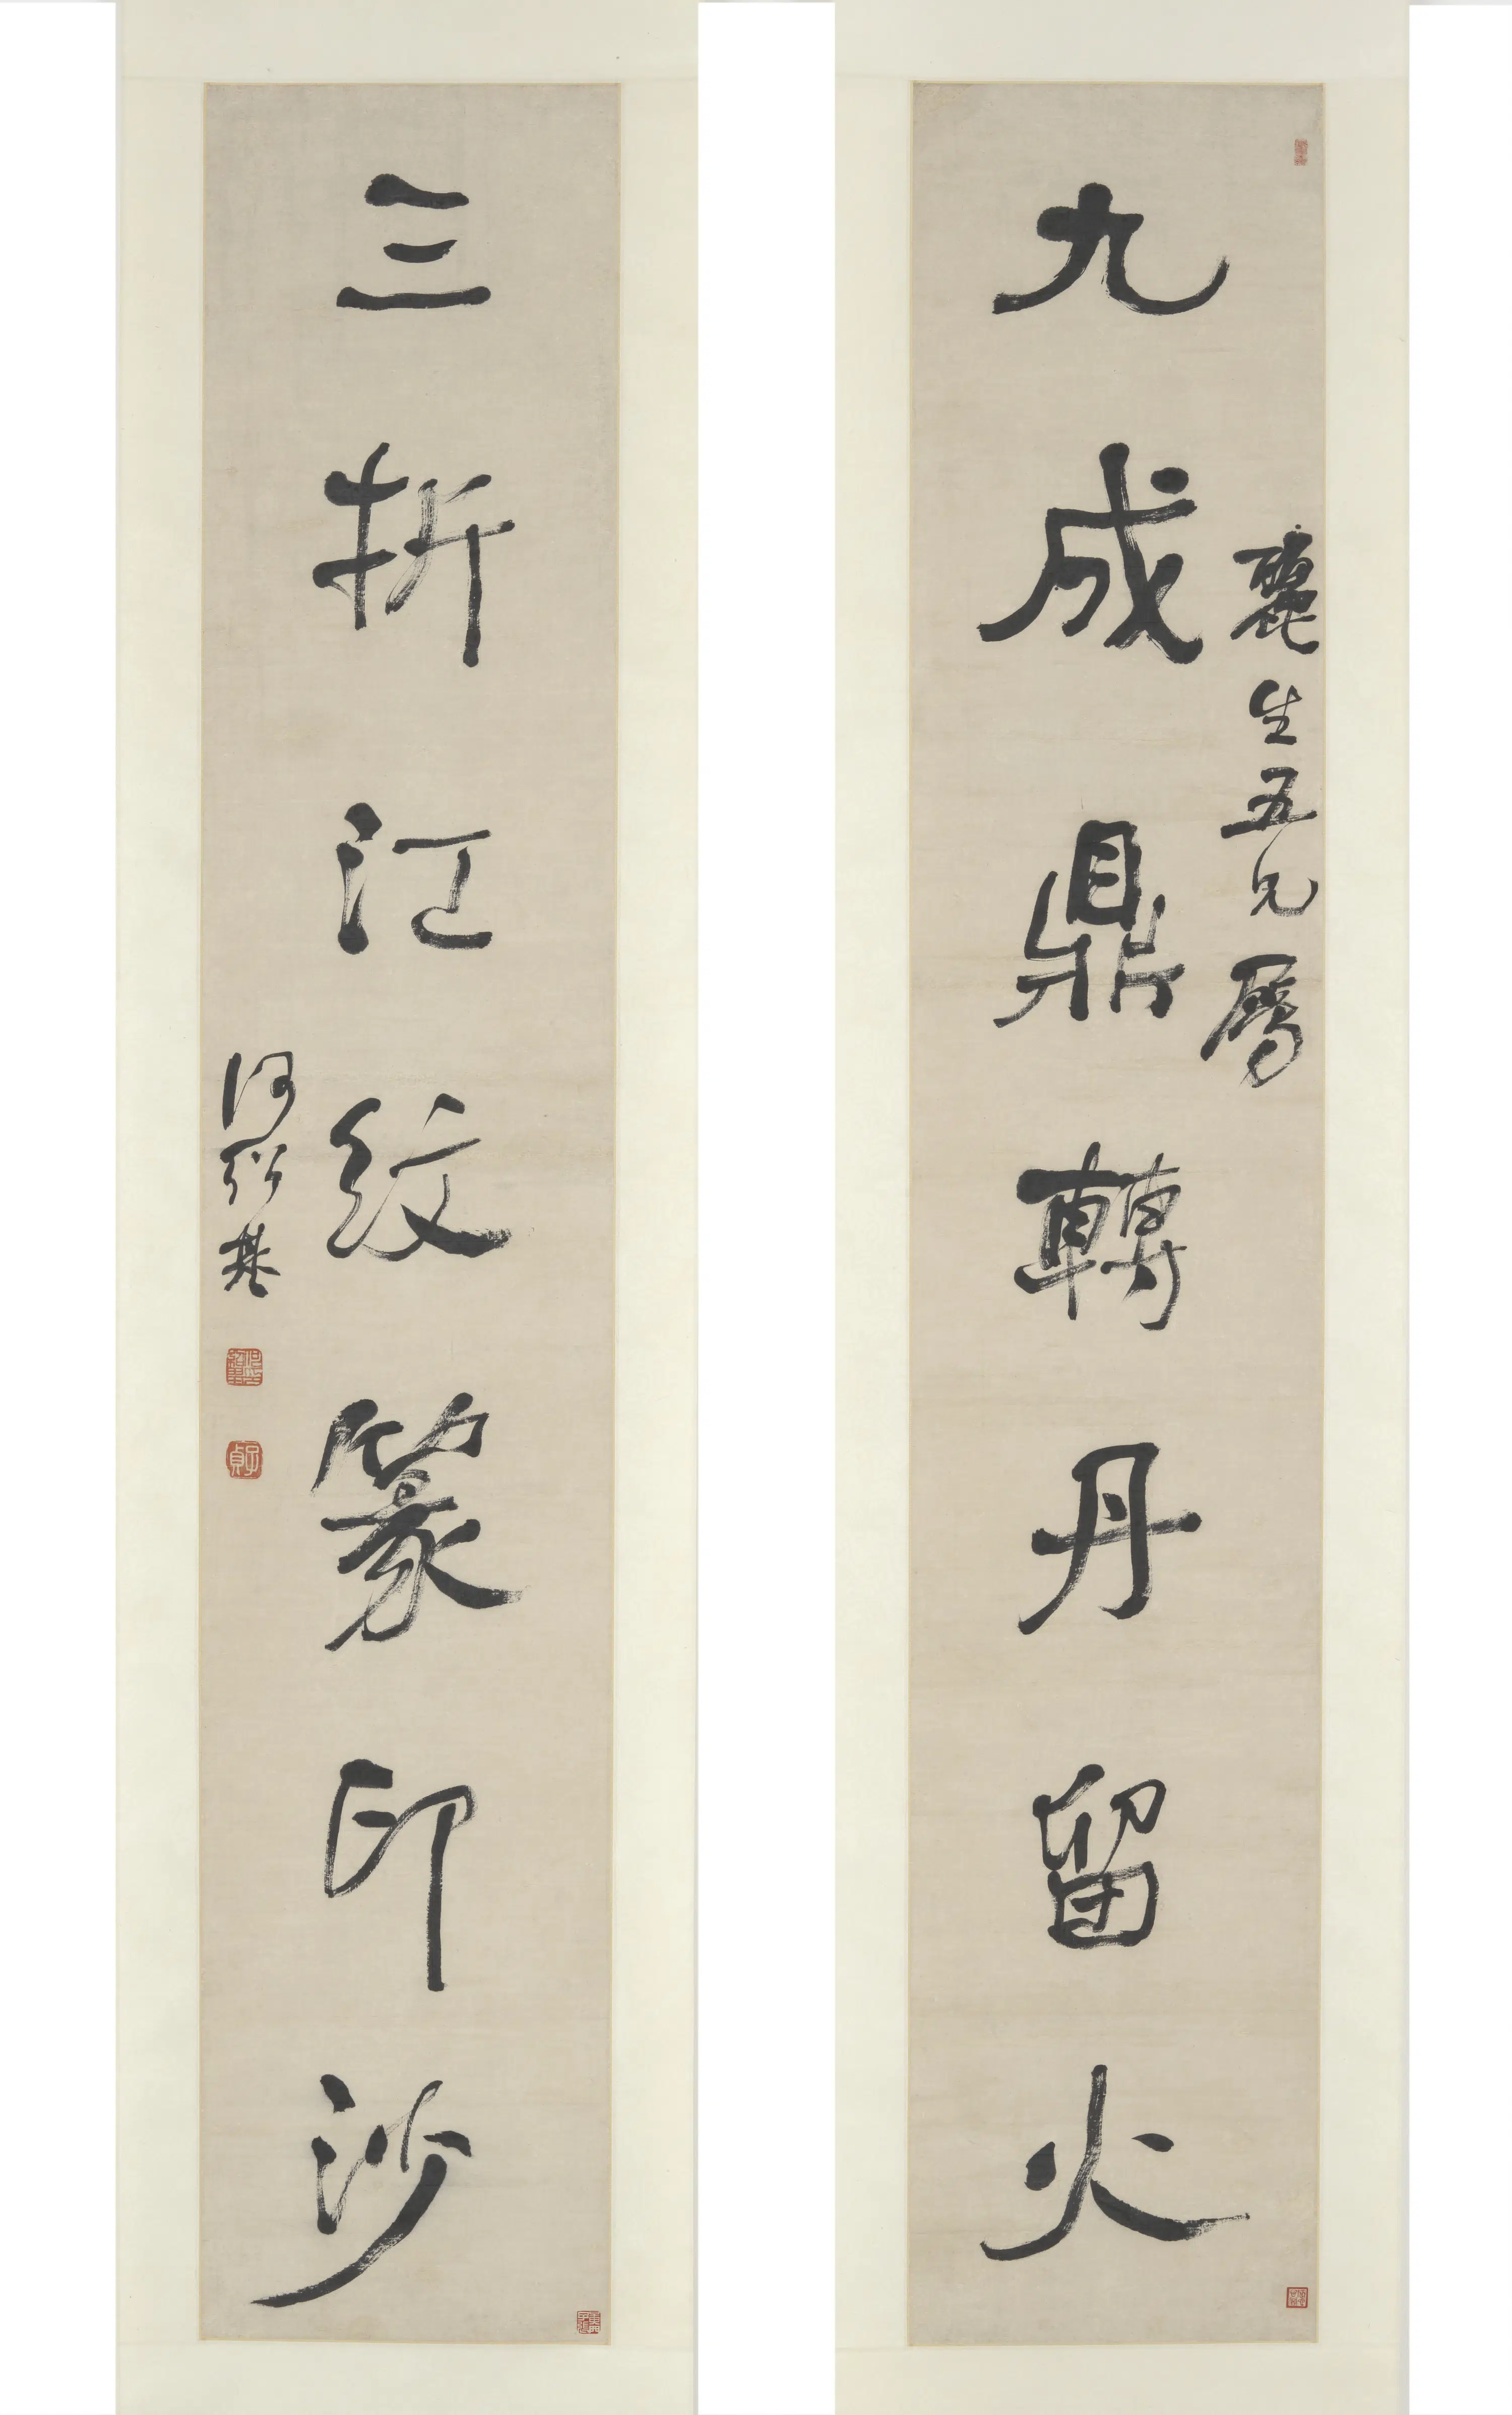 麗生五兄屬
九成鼎轉丹留火
三折江紋篆印沙
何紹基
子貞